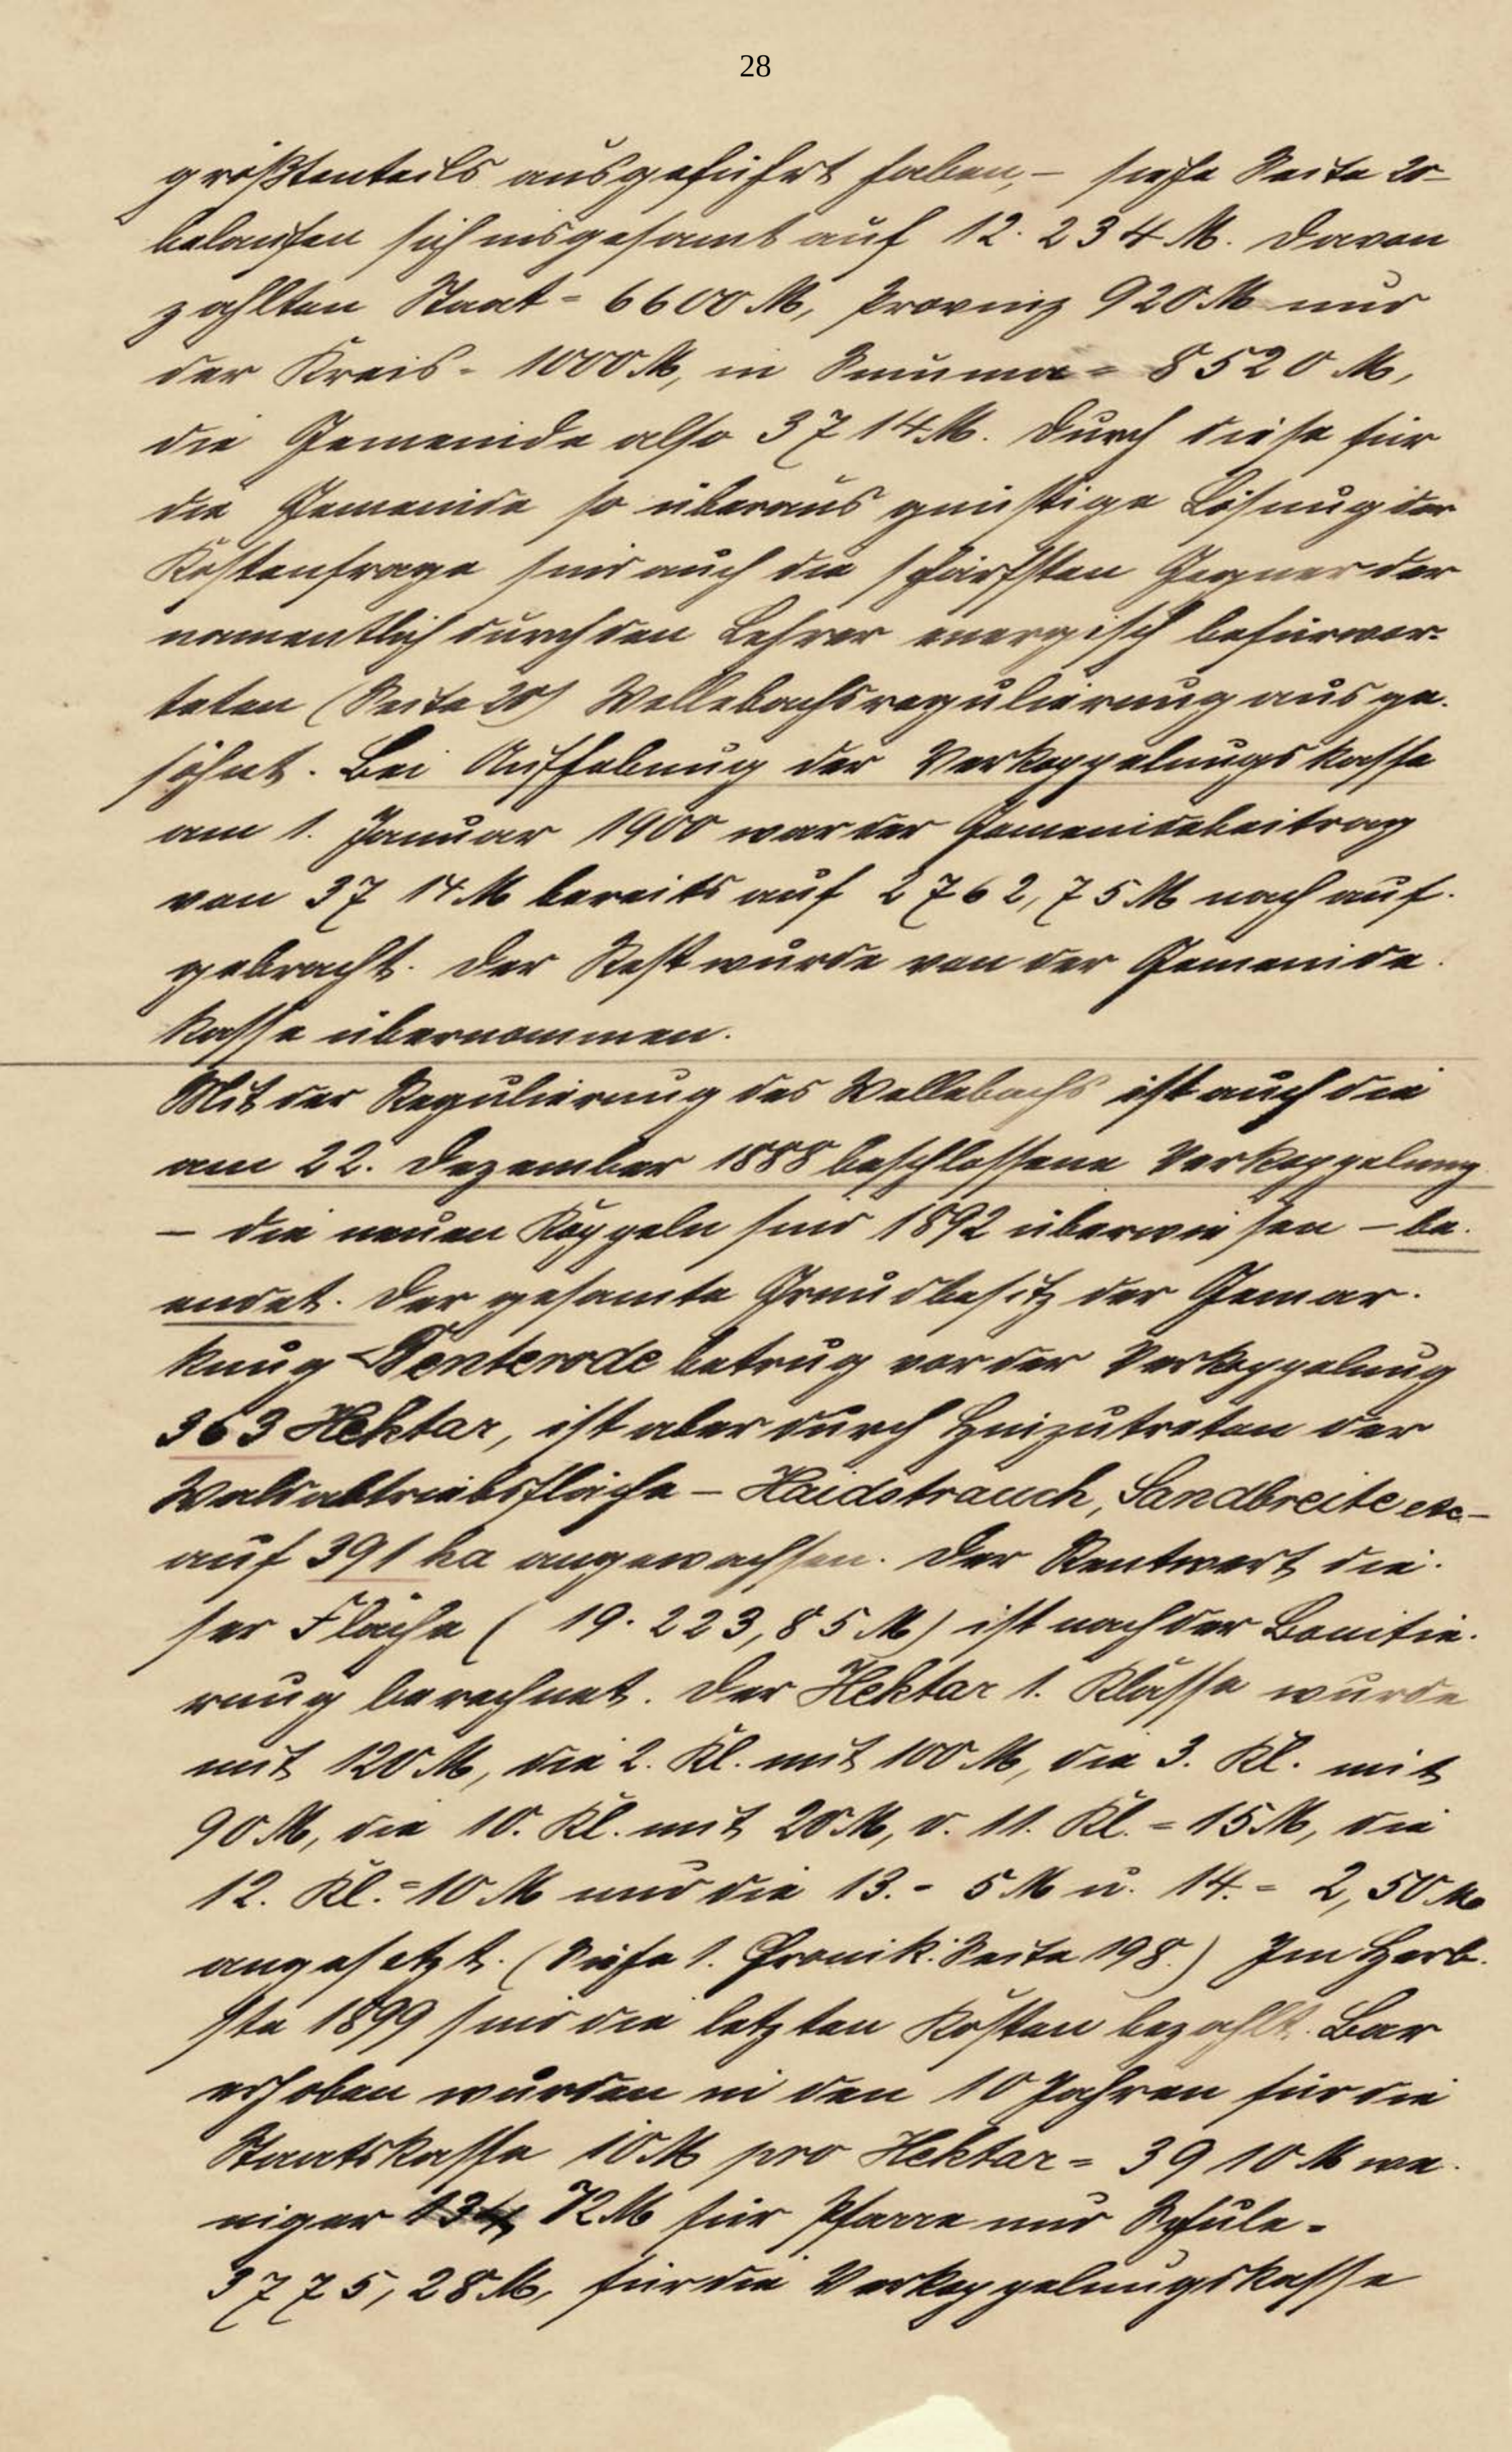 28
größtenteils ausgeführt haben, – siehe Seite 20 –
belaufen sich insgesamt auf 12.234 M. Davon
zahlten Staat = 6600 M, Provinz 920 M und
der Kreis = 1000 M, in Summa = 8520 M,
die Gemeinde also 3714 M. Durch diese für
die Gemeinde so überaus günstige Lösung der
Kostenfrage sind auch die schärfsten Gegner der
namentlich durch den Lehrer energisch befürwor-
teten (Seite 20) Wellebachsregulierung ausge-
söhnt. Bei Aufhebung der Verkoppelungskasse
am 1. Januar 1900 war der Gemeindebeitrag
von 3714 M bereits auf 2762,75 M nach auf-
gebracht. Der Rest wurde von der Gemeinde-
kasse übernommen.
Mit der Regulierung des Wellebachs ist auch die
am 22. Dezember 1888 beschlossene Verkoppelung
– die neuen Koppeln sind 1892 überwiesen – be-
endet. Der gesamte Grundbesitz der Gemar-
kung Renterode betrug vor der Verkoppelung
363 Hektar, ist aber durch Hinzutreten der
Waldabtriebsfläche – Haidstrauch, Sandbreite etc –
auf 391 ha angewachsen. Der Rentwert die-
ser Fläche (19.223,85 M) ist nach der Bonitie-
rung berechnet. Der Hektar 1. Klasse wurde
mit 120 M, die 2. Kl. mit 100 M, die 3. Kl. mit
90 M, die 10. Kl. mit 20 M, d. 11. Kl. = 15 M, die
12. Kl. = 10 M und die 13. = 5 M u. 14. = 2,50 M
angesetzt. (Siehe 1. Chronik: Seite 198.) Im Herb-
ste 1899 sind die letzten Kosten bezahlt. Bar
erhoben wurden in den 10 Jahren für die
Staatskasse 10 M pro Hektar = 3910 M we-
niger 134, 72 M für Pfarre und Schule =
3775,28 M, für die Verkoppelungskasse